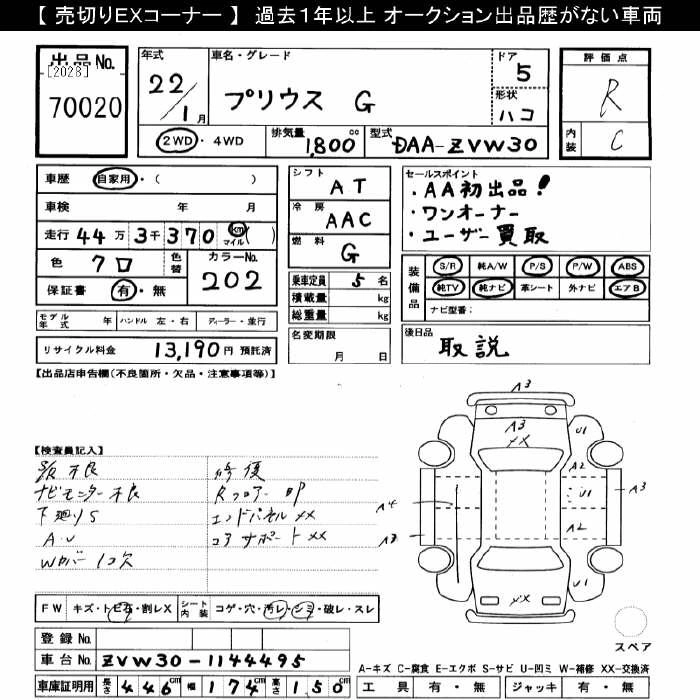 【 売切りEXコーナー 】 過去１年以上 オークション出品歴がない車両
出品No.
[2028]
70020
年式
22/1月
車名・グレード
プリウス G
ドア
5
形状
ハコ
2WD・4WD
排気量
1,800cc
型式
DAA-ZVW30
評価点
R
内装
C
車歴
自家用・( )
車検 年 月
走行 44万 3千 370 km マイル ( )
色
色替
カラーNo.
202
保証書 有・無
シフト
AT
冷房
AAC
燃料
G
乗車定員 5名
積載量 kg
総重量 kg
セールスポイント
・AA初出品!
・ワンオーナー
・ユーザー買取
装備品
S/R 純A/W P/S P/W ABS
純TV 純ナビ 革シート 外ナビ エアB
ナビ型番:
モデル年式 年 ハンドル 左・右 ディーラー・並行
リサイクル料金 13,190円 預託済
名変期限
月 日
後日品
取説
【出品店申告欄(不良箇所・欠品・注意事項等)】
【検査員記入】
ナビモニター不良
下廻りS
Wカバー1コ欠
修復
Rフロアー凹
エンドパネルXX
コアサポートXX
A3
A3
XX
U1
A2
U1
A3
A4
A2
A3
U1
XX
スペア
FW キズ・トビ石・割レX
シート内装 コゲ・穴・汚レ・シミ・破レ・スレ
登録No.
車台No. ZVW30-1144495
車庫証明用 長さ 446cm 幅 174cm 高さ 150cm
A-キズ C-腐食 E-エクボ S-サビ U-凹ミ W-補修 XX-交換済
工具 有・無 ジャッキ 有・無